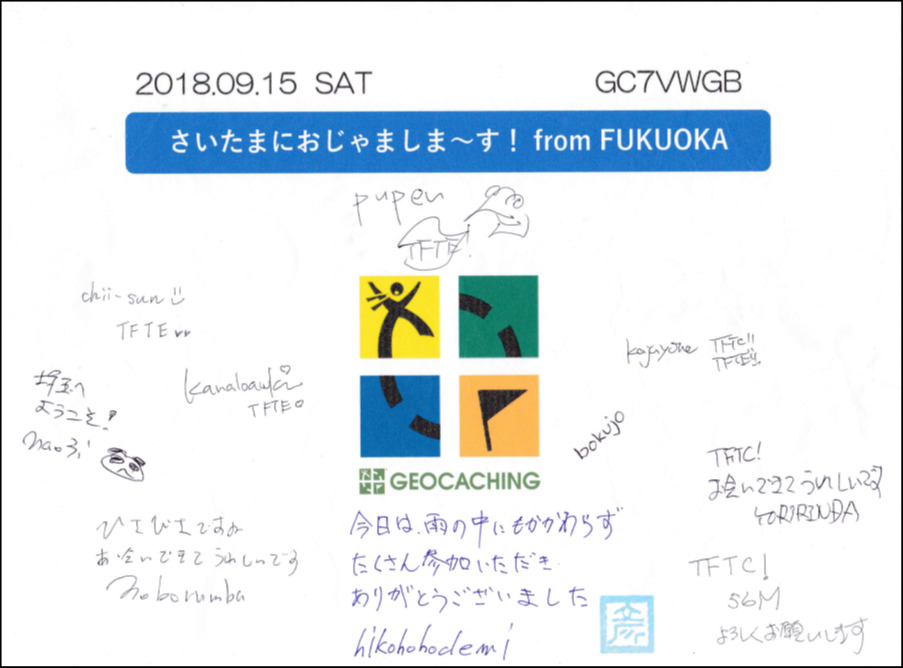 2018.09.15 SAT
GC7VWGB
さいたまにおじゃましま〜す！ from FUKUOKA
pupen
TFTE!
chii-sun
TFTE
kogayone TFTC!!
TFTE!!
埼玉へ
ようこそ!
kanaloaukai
TFTE
bokujo
GEOCACHING
TFTC!
お会いできてうれしいです
YORIRINDA
ひさびさですね
お会いできてうれしいです
noborumba
今日は、雨の中にもかかわらず
たくさん参加いただき
ありがとうございました
hikohohodemi
TFTC!
56M
よろしくお願いします